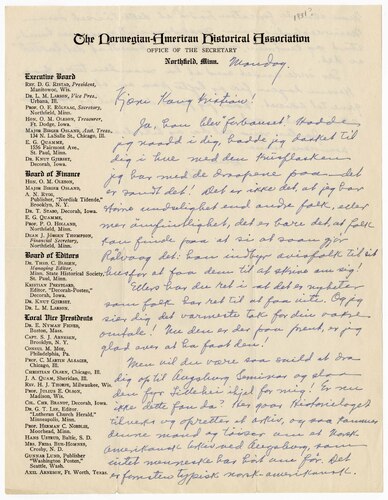 1931?
The Norwegian-American Historical Association
OFFICE OF THE SECRETARY
Northfield, Minn.
Monday.
Executive Board
Rev. D. G. Ristad, President,
Manitowoc, Wis.
Dr. L. M. Larson, Vice Pres.,
Urbana, Ill.
Prof. O. E. Rölvaag, Secretary,
Northfield, Minn.
Hon. O. M. Oleson, Treasurer,
Ft. Dodge, Iowa.
Major Birger Osland, Asst. Treas.
134 N. LaSalle St., Chicago, Ill.
E. G. Quamme,
1356 Fairmount Ave.,
St. Paul, Minn.
Dr. Knut Gjerset,
Decorah, Iowa.
Board of Finance
Hon. O. M. Oleson,
Major Birger Osland,
A. N. Rygg,
Publisher, "Nordisk Tidende,"
Brooklyn, N. Y.
Dr. T. Stabo, Decorah, Iowa.
E. G. Quamme,
St. Paul, Minn.
Prof. P. O. Holland,
Northfield, Minn.
Dean J. Jörgen Thompson,
Financial Secretary,
Northfield, Minn.
Board of Editors
Dr. Theo. C. Blegen,
Managing Editor,
Minn. State Historical Society,
St. Paul, Minn.
Kristian Prestgard,
Editor, "Decorah-Posten,"
Decorah, Iowa.
Dr. Knut Gjerset
Dr. L. M. Larson.
Local Vice Presidents
Dr. E. Nyman Figved,
Boston, Mass.
Capt. S. J. Arnesen,
Brooklyn, N. Y.
Consul M. Moe,
Philadelphia, Pa.
Prof. C. Martin Alsager,
Chicago, Ill.
Christian Olsen, Chicago, Ill.
J. A. Quam, Sheridan, Ill.
Rev. H. J. Thorpe, Milwaukee, Wis.
Prof. Julius E. Olson,
Madison, Wis.
Ch. Chr. Brandt, Decorah, Iowa.
Dr. G. T. Lee, Editor,
"Lutheran Church Herald,"
Minneapolis, Minn.
Prof. Herman C. Nordlie,
Moorhead, Minn.
Hans Ustrud, Baltic, S. D.
Mrs. Feiga Bye-Homnes,
Crosby, N. D.
Gunnar Lund, Publisher
"Washington Posten,"
Seattle, Wash.
Axel Arneson, Ft. Worth, Texas.
Kjære
Ja,
Hadde
jeg naadd i dig, hadde jeg dasket til
dig i huve med den
jeg bar med de draapene paa
er sandt det! Det er ikke det at jeg har
större end andre folk, eller
mer det er bare det at folk
kan finde paa at si at saan gjör
Rölvaag det: han indbyr avisfolk til sit
for at faa dem til at skrive om sig!
Ellers har du ret i at det er nyheter
som folk har ret til at faa vite. Og jeg
sier dig det varmeste tak for din vakre
omtale! Nu den er der paa prent, er jeg
glad over at ha faat den!
Men vil du være saa snild at dra
dig op til Augsburg Seminar og slaa
den for ihjel for mig! Er nu
ikke dette fanda? Her gaar Historielaget
tilverks og opretter et arkiv, og saa kommer
denne mand og av et Norsk
Amerikansk arkiv ved Augsburg, som
eneste menneske har hört om för. Det
er forresten typisk norsk-amerikansk.